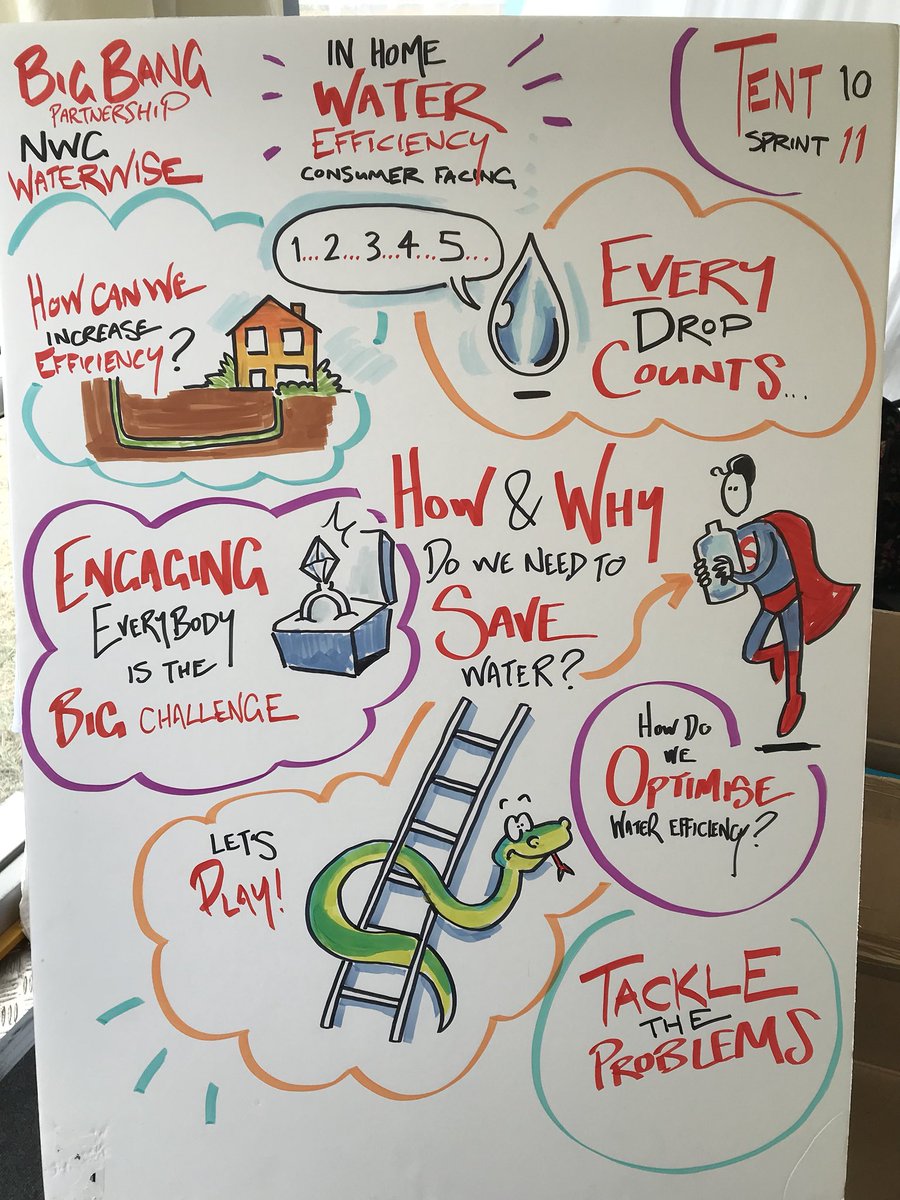 BIG BANG
PARTNERSHIP
NWG
WATERWISE
IN HOME
WATER
EFFICIENCY
CONSUMER FACING
TENT 10
SPRINT 11
HOW CAN WE
INCREASE
EFFICIENCY?
1...2...3...4...5...
EVERY
DROP
COUNTS...
HOW & WHY
DO WE NEED TO
SAVE
WATER?
S
ENGAGING
EVERYBODY
IS THE
BIG CHALLENGE
HOW DO
WE
OPTIMISE
WATER EFFICIENCY?
LET'S
PLAY!
TACKLE
THE
PROBLEMS